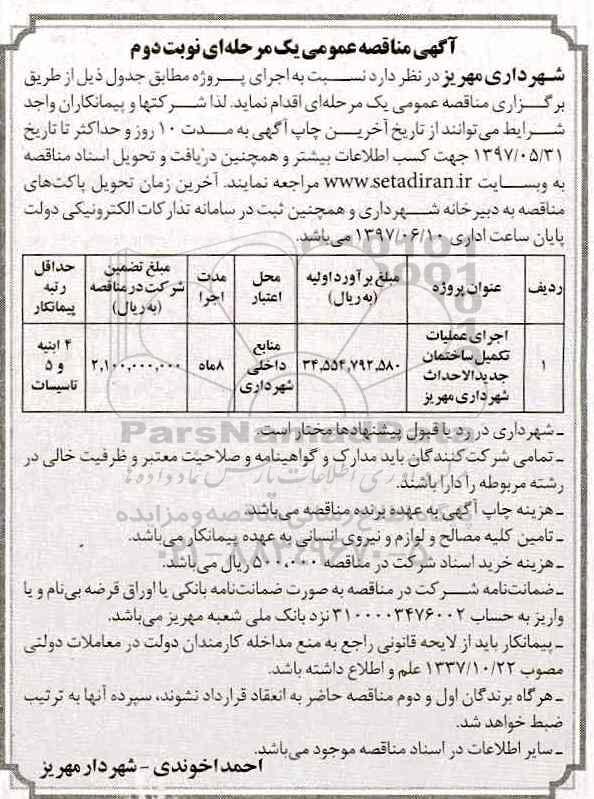 آگهی مناقصه عمومی یک مرحله‌ای نوبت دوم
شهرداری مهریز در نظر دارد نسبت به اجرای پروژه مطابق جدول ذیل از طریق
برگزاری مناقصه عمومی یک مرحله‌ای اقدام نماید. لذا شرکتها و پیمانکاران واجد
شرایط می‌توانند از تاریخ آخرین چاپ آگهی به مدت ۱۰ روز و حداکثر تا تاریخ
۱۳۹۷/۰۵/۳۱ جهت کسب اطلاعات بیشتر و همچنین دریافت و تحویل اسناد مناقصه
به وبسایت www.setadiran.ir مراجعه نمایند. آخرین زمان تحویل پاکت‌های
مناقصه به دبیرخانه شهرداری و همچنین ثبت در سامانه تدارکات الکترونیکی دولت
پایان ساعت اداری ۱۳۹۷/۰۶/۱۰ می‌باشد.
ردیف | عنوان پروژه | مبلغ برآورد اولیه (به ریال) | محل اعتبار | مدت اجرا | مبلغ تضمین شرکت در مناقصه (به ریال) | حداقل رتبه پیمانکار
۱ | اجرای عملیات تکمیل ساختمان جدیدالاحداث شهرداری مهریز | ۳۴,۵۵۴,۷۹۲,۵۸۰ | منابع داخلی شهرداری | ۸ماه | ۲,۱۰۰,۰۰۰,۰۰۰ | ۴ ابنیه و ۵ تاسیسات
ـ شهرداری در رد یا قبول پیشنهادها مختار است.
ـ تمامی شرکت‌کنندگان باید مدارک و گواهینامه و صلاحیت معتبر و ظرفیت خالی در
رشته مربوطه را دارا باشند.
ـ هزینه چاپ آگهی به عهده برنده مناقصه می‌باشد.
ـ تامین کلیه مصالح و لوازم و نیروی انسانی به عهده پیمانکار می‌باشد.
ـ هزینه خرید اسناد شرکت در مناقصه ۵۰۰,۰۰۰ ریال می‌باشد.
ـ ضمانت‌نامه شرکت در مناقصه به صورت ضمانت‌نامه بانکی یا اوراق قرضه بی‌نام و یا
واریز به حساب ۳۱۰۰۰۰۳۴۷۶۰۰۲ نزد بانک ملی شعبه مهریز می‌باشد.
ـ پیمانکار باید از لایحه قانونی راجع به منع مداخله کارمندان دولت در معاملات دولتی
مصوب ۱۳۳۷/۱۰/۲۲ علم و اطلاع داشته باشد.
ـ هرگاه برندگان اول و دوم مناقصه حاضر به انعقاد قرارداد نشوند، سپرده آنها به ترتیب
ضبط خواهد شد.
ـ سایر اطلاعات در اسناد مناقصه موجود می‌باشد.
احمد اخوندی - شهردار مهریز
ParsNamadData